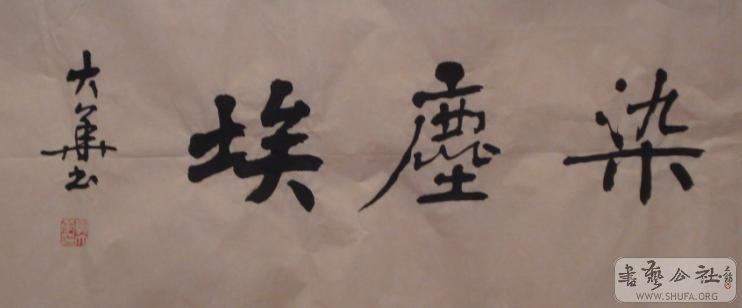 染塵埃
大华书
書藝公社
WWW.SHUFA.ORG